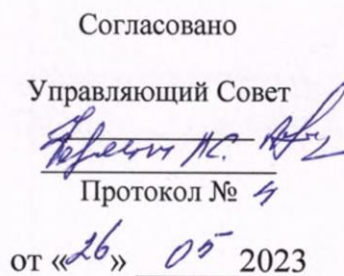 Согласовано
Управляющий Совет
Протокол № 4
от «26» 05 2023